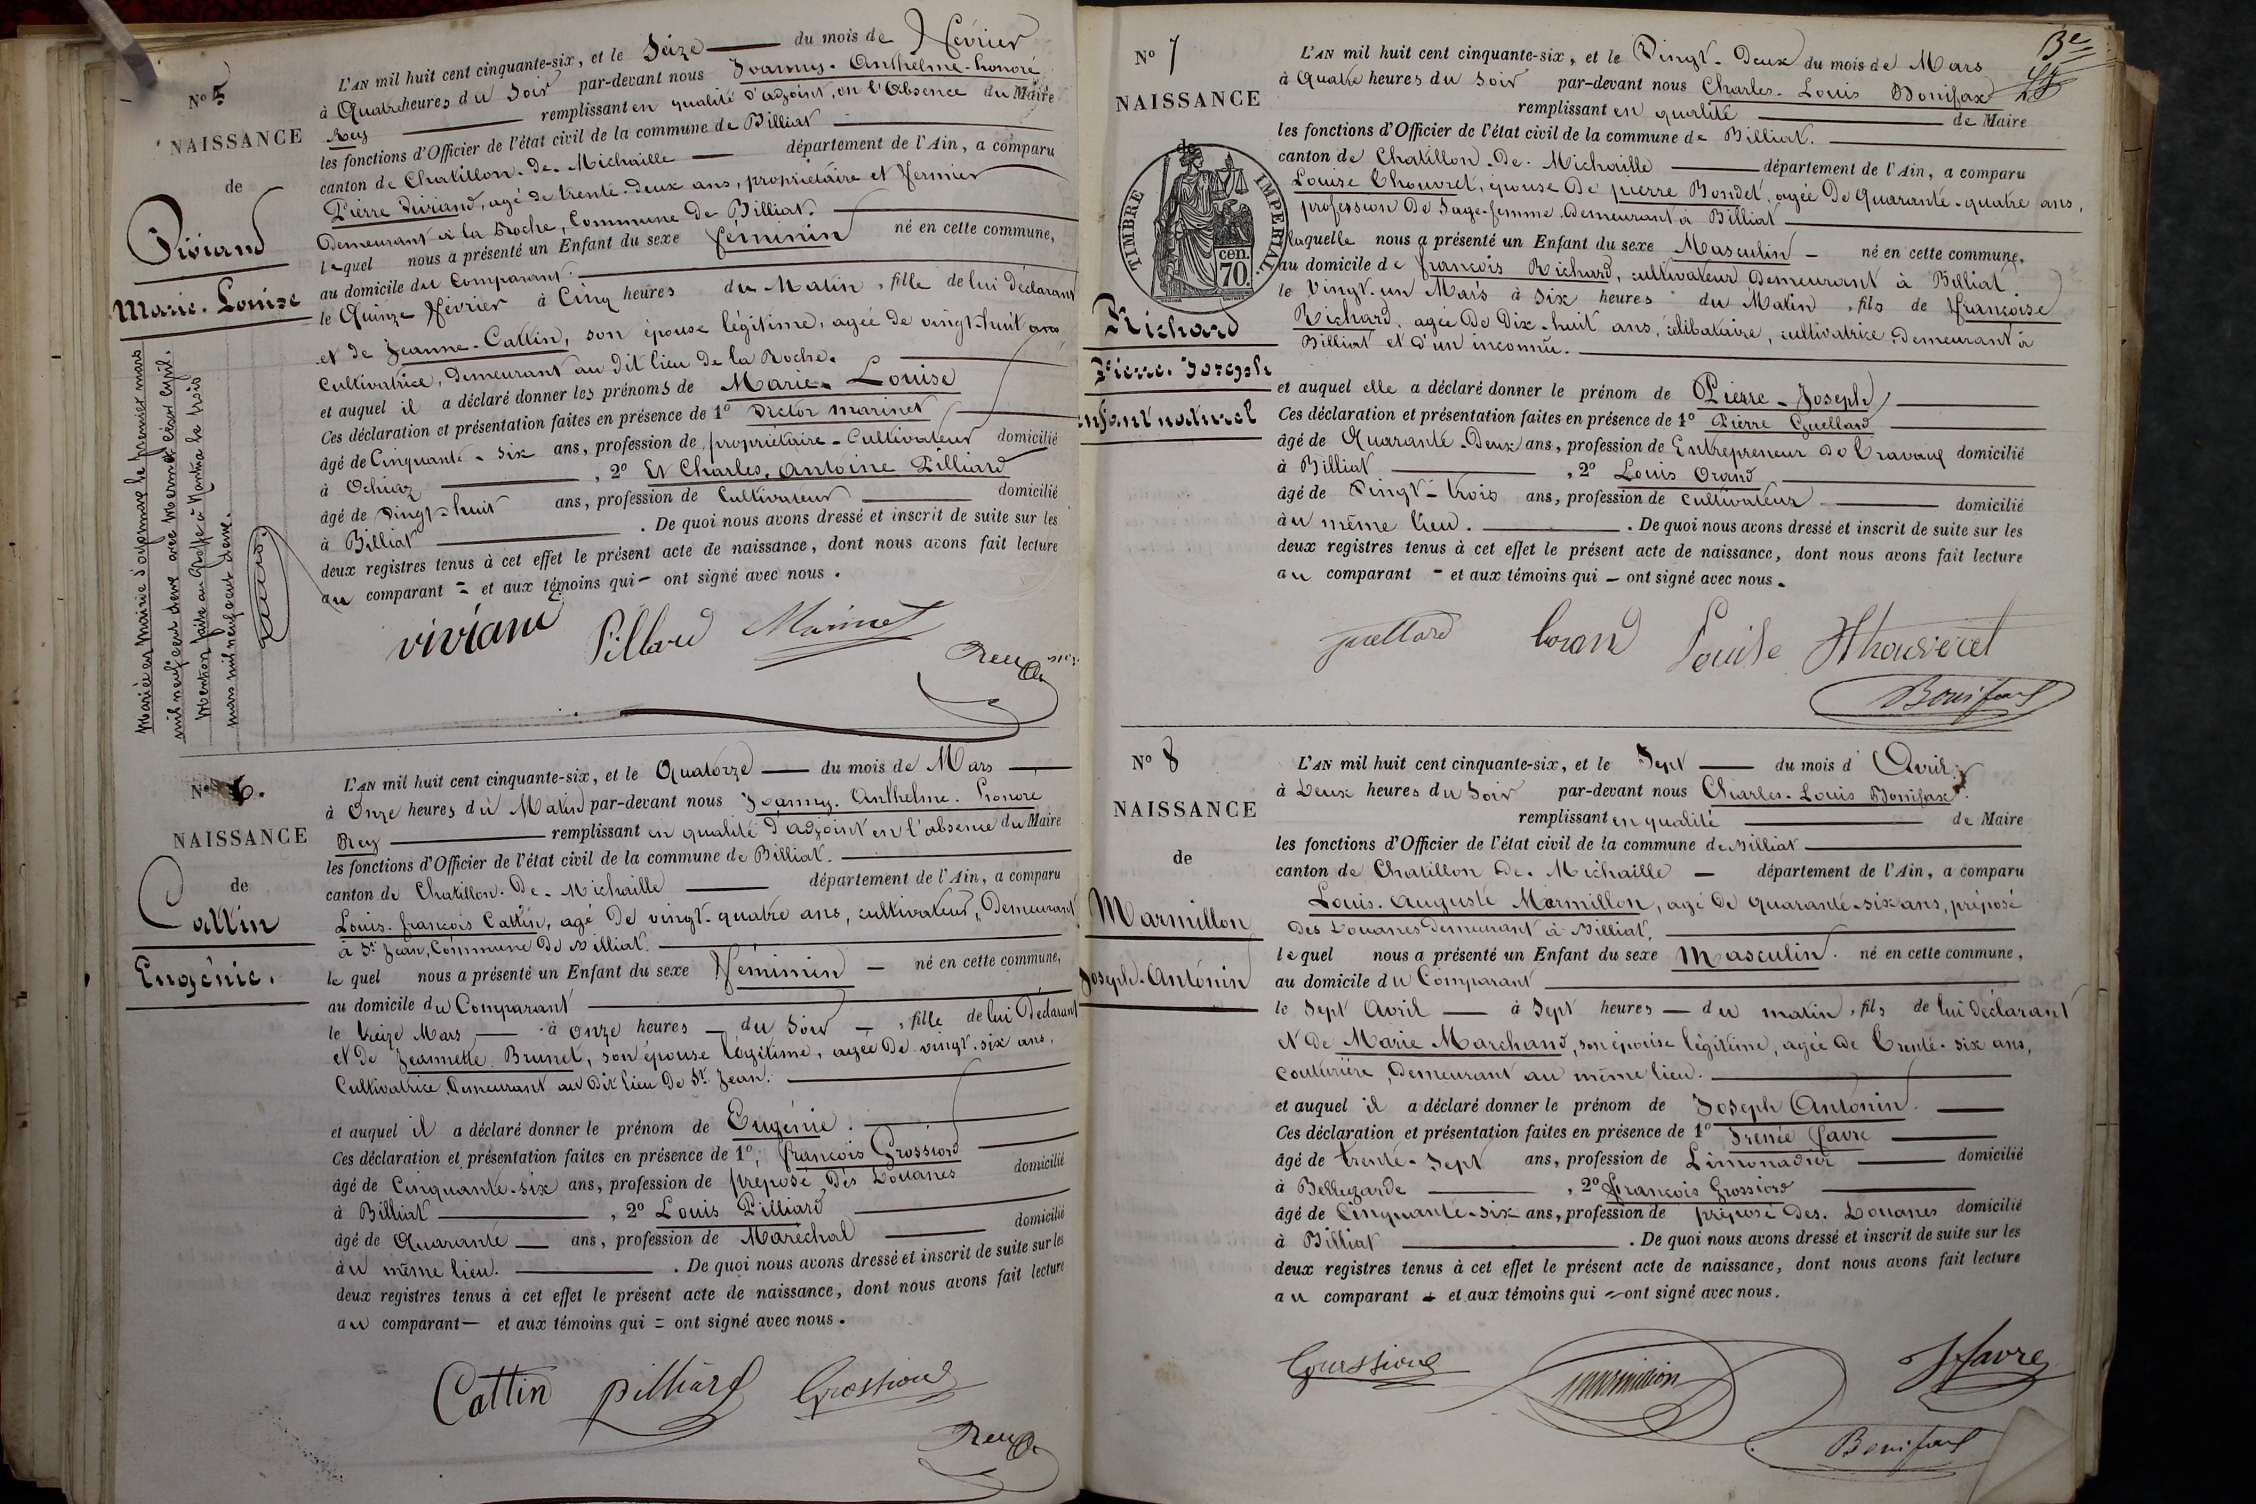 N° 5
NAISSANCE
de
Viviand
Marie-Louise
Mariée en Mairie d'oyonnax le premier mars
mil neuf cent deux avec Mermet César Cyril.
Mention faite au Greffe à Nantua le trois
mars mil neuf cent deux.
L'AN mil huit cent cinquante-six, et le Seize du mois de Février
à Quatre heures du Soir par-devant nous Joanny-Anthelme-honoré
Rey remplissant en qualité d'adjoint, en l'Absence du Maire
les fonctions d'Officier de l'état civil de la commune de Billiat
canton de Chatillon-de-Michaille département de l'Ain, a comparu
Pierre Viviand, agé de trente-deux ans, propriétaire et fermier
Demeurant à la Roche, Commune de Billiat.
lequel nous a présenté un Enfant du sexe féminin né en cette commune,
au domicile du Comparant.
le Quinze Février à Cinq heures du Matin, fille de lui déclarant
et de Jeanne-Cattin, son épouse légitime, agée de vingt-huit ans
Cultivatrice, demeurant au dit lieu de la Roche.
et auquel il a déclaré donner les prénoms de Marie-Louise
Ces déclaration et présentation faites en présence de 1° Victor Marinet
âgé de Cinquante-six ans, profession de propriétaire-Cultivateur domicilié
à Ochiaz, 2° Et Charles-Antoine Pilliard
âgé de vingt-huit ans, profession de Cultivateur domicilié
à Billiat. De quoi nous avons dressé et inscrit de suite sur les
deux registres tenus à cet effet le présent acte de naissance, dont nous avons fait lecture
au comparant = et aux témoins qui - ont signé avec nous.
viviand Pillard Marinet
Rey
N° 6.
NAISSANCE
de
Cattin
Eugénie.
L'AN mil huit cent cinquante-six, et le Quatorze du mois de Mars
à Onze heures du Matin par-devant nous Joanny-Anthelme-honoré
Rey remplissant en qualité d'adjoint en l'absence du Maire
les fonctions d'Officier de l'état civil de la commune de Billiat.
canton de Chatillon-De-Michaille département de l'Ain, a comparu
Louis-françois Cattin, agé de vingt-quatre ans, cultivateur, Demeurant
à St Jean, Commune de Billiat.
le quel nous a présenté un Enfant du sexe Féminin né en cette commune,
au domicile du Comparant
le treize Mars à onze heures du Soir, fille de lui Déclarant
et de Jeannette Brunet, son épouse légitime, agée de vingt-six ans,
Cultivatrice Demeurant au Dit lieu de St Jean.
et auquel il a déclaré donner le prénom de Eugénie.
Ces déclaration et présentation faites en présence de 1°, françois Grossiord
âgé de Cinquante-six ans, profession de préposé Des Douanes domicilié
à Billiat, 2° Louis Pilliard
âgé de Quarante ans, profession de Maréchal domicilié
au même lieu. De quoi nous avons dressé et inscrit de suite sur les
deux registres tenus à cet effet le présent acte de naissance, dont nous avons fait lecture
au comparant - et aux témoins qui = ont signé avec nous.
Cattin pilliard Grossiord
Rey
N° 7
NAISSANCE
de
TIMBRE IMPERIAL.
cen.
70.
Richard
Pierre-Joseph
enfant naturel
L'AN mil huit cent cinquante-six, et le Vingt-Deux du mois de Mars
à Quatre heures du Soir par-devant nous Charles-Louis Bonifax
remplissant en qualité de Maire
les fonctions d'Officier de l'état civil de la commune de Billiat.
canton de Chatillon-De-Michaille département de l'Ain, a comparu
Louise Thouvret, épouse de pierre Bondet, agée De Quarante-quatre ans,
profession De Sage-femme Demeurant à Billiat
laquelle nous a présenté un Enfant du sexe Masculin né en cette commune,
au domicile de françois Richard, cultivateur Demeurant à Billiat.
le Vingt-un Mars à Six heures du Matin, fils de Françoise
Richard, agée De Dix-huit ans, célibataire, cultivatrice, Demeurant à
Billiat et d'un inconnu.
et auquel elle a déclaré donner le prénom de Pierre-Joseph
Ces déclaration et présentation faites en présence de 1° Pierre Guellard
âgé de Quarante-Deux ans, profession de Entrepreneur de Travaux domicilié
à Billiat, 2° Louis Orand
âgé de Vingt-trois ans, profession de cultivateur domicilié
au même lieu. De quoi nous avons dressé et inscrit de suite sur les
deux registres tenus à cet effet le présent acte de naissance, dont nous avons fait lecture
au comparant - et aux témoins qui - ont signé avec nous.
guellard Louise Thouveret
Bonifax
N° 8
NAISSANCE
de
Marmillon
Joseph-Antonin
L'AN mil huit cent cinquante-six, et le Sept du mois d'Avril
à Deux heures du Soir par-devant nous Charles-Louis Bonifax
remplissant en qualité de Maire
les fonctions d'Officier de l'état civil de la commune de Billiat
canton de Chatillon De-Michaille département de l'Ain, a comparu
Louis-Auguste Marmillon, agé de quarante-six ans, préposé
des Douanes Demeurant à Billiat,
lequel nous a présenté un Enfant du sexe Masculin. né en cette commune,
au domicile du Comparant
le Sept Avril à Sept heures du matin, fils de lui déclarant
et de Marie Marchand, son épouse légitime, agée de trente-six ans,
couturière, Demeurant au même lieu.
et auquel il a déclaré donner le prénom de Joseph Antonin.
Ces déclaration et présentation faites en présence de 1° Irenée favre
âgé de trente-Sept ans, profession de Limonadier domicilié
à Bellegarde, 2° françois Grossiord
âgé de Cinquante-Six ans, profession de préposé Des Douanes domicilié
à Billiat. De quoi nous avons dressé et inscrit de suite sur les
deux registres tenus à cet effet le présent acte de naissance, dont nous avons fait lecture
au comparant et aux témoins qui ont signé avec nous.
Grossiord Marmillon favre
Bonifax